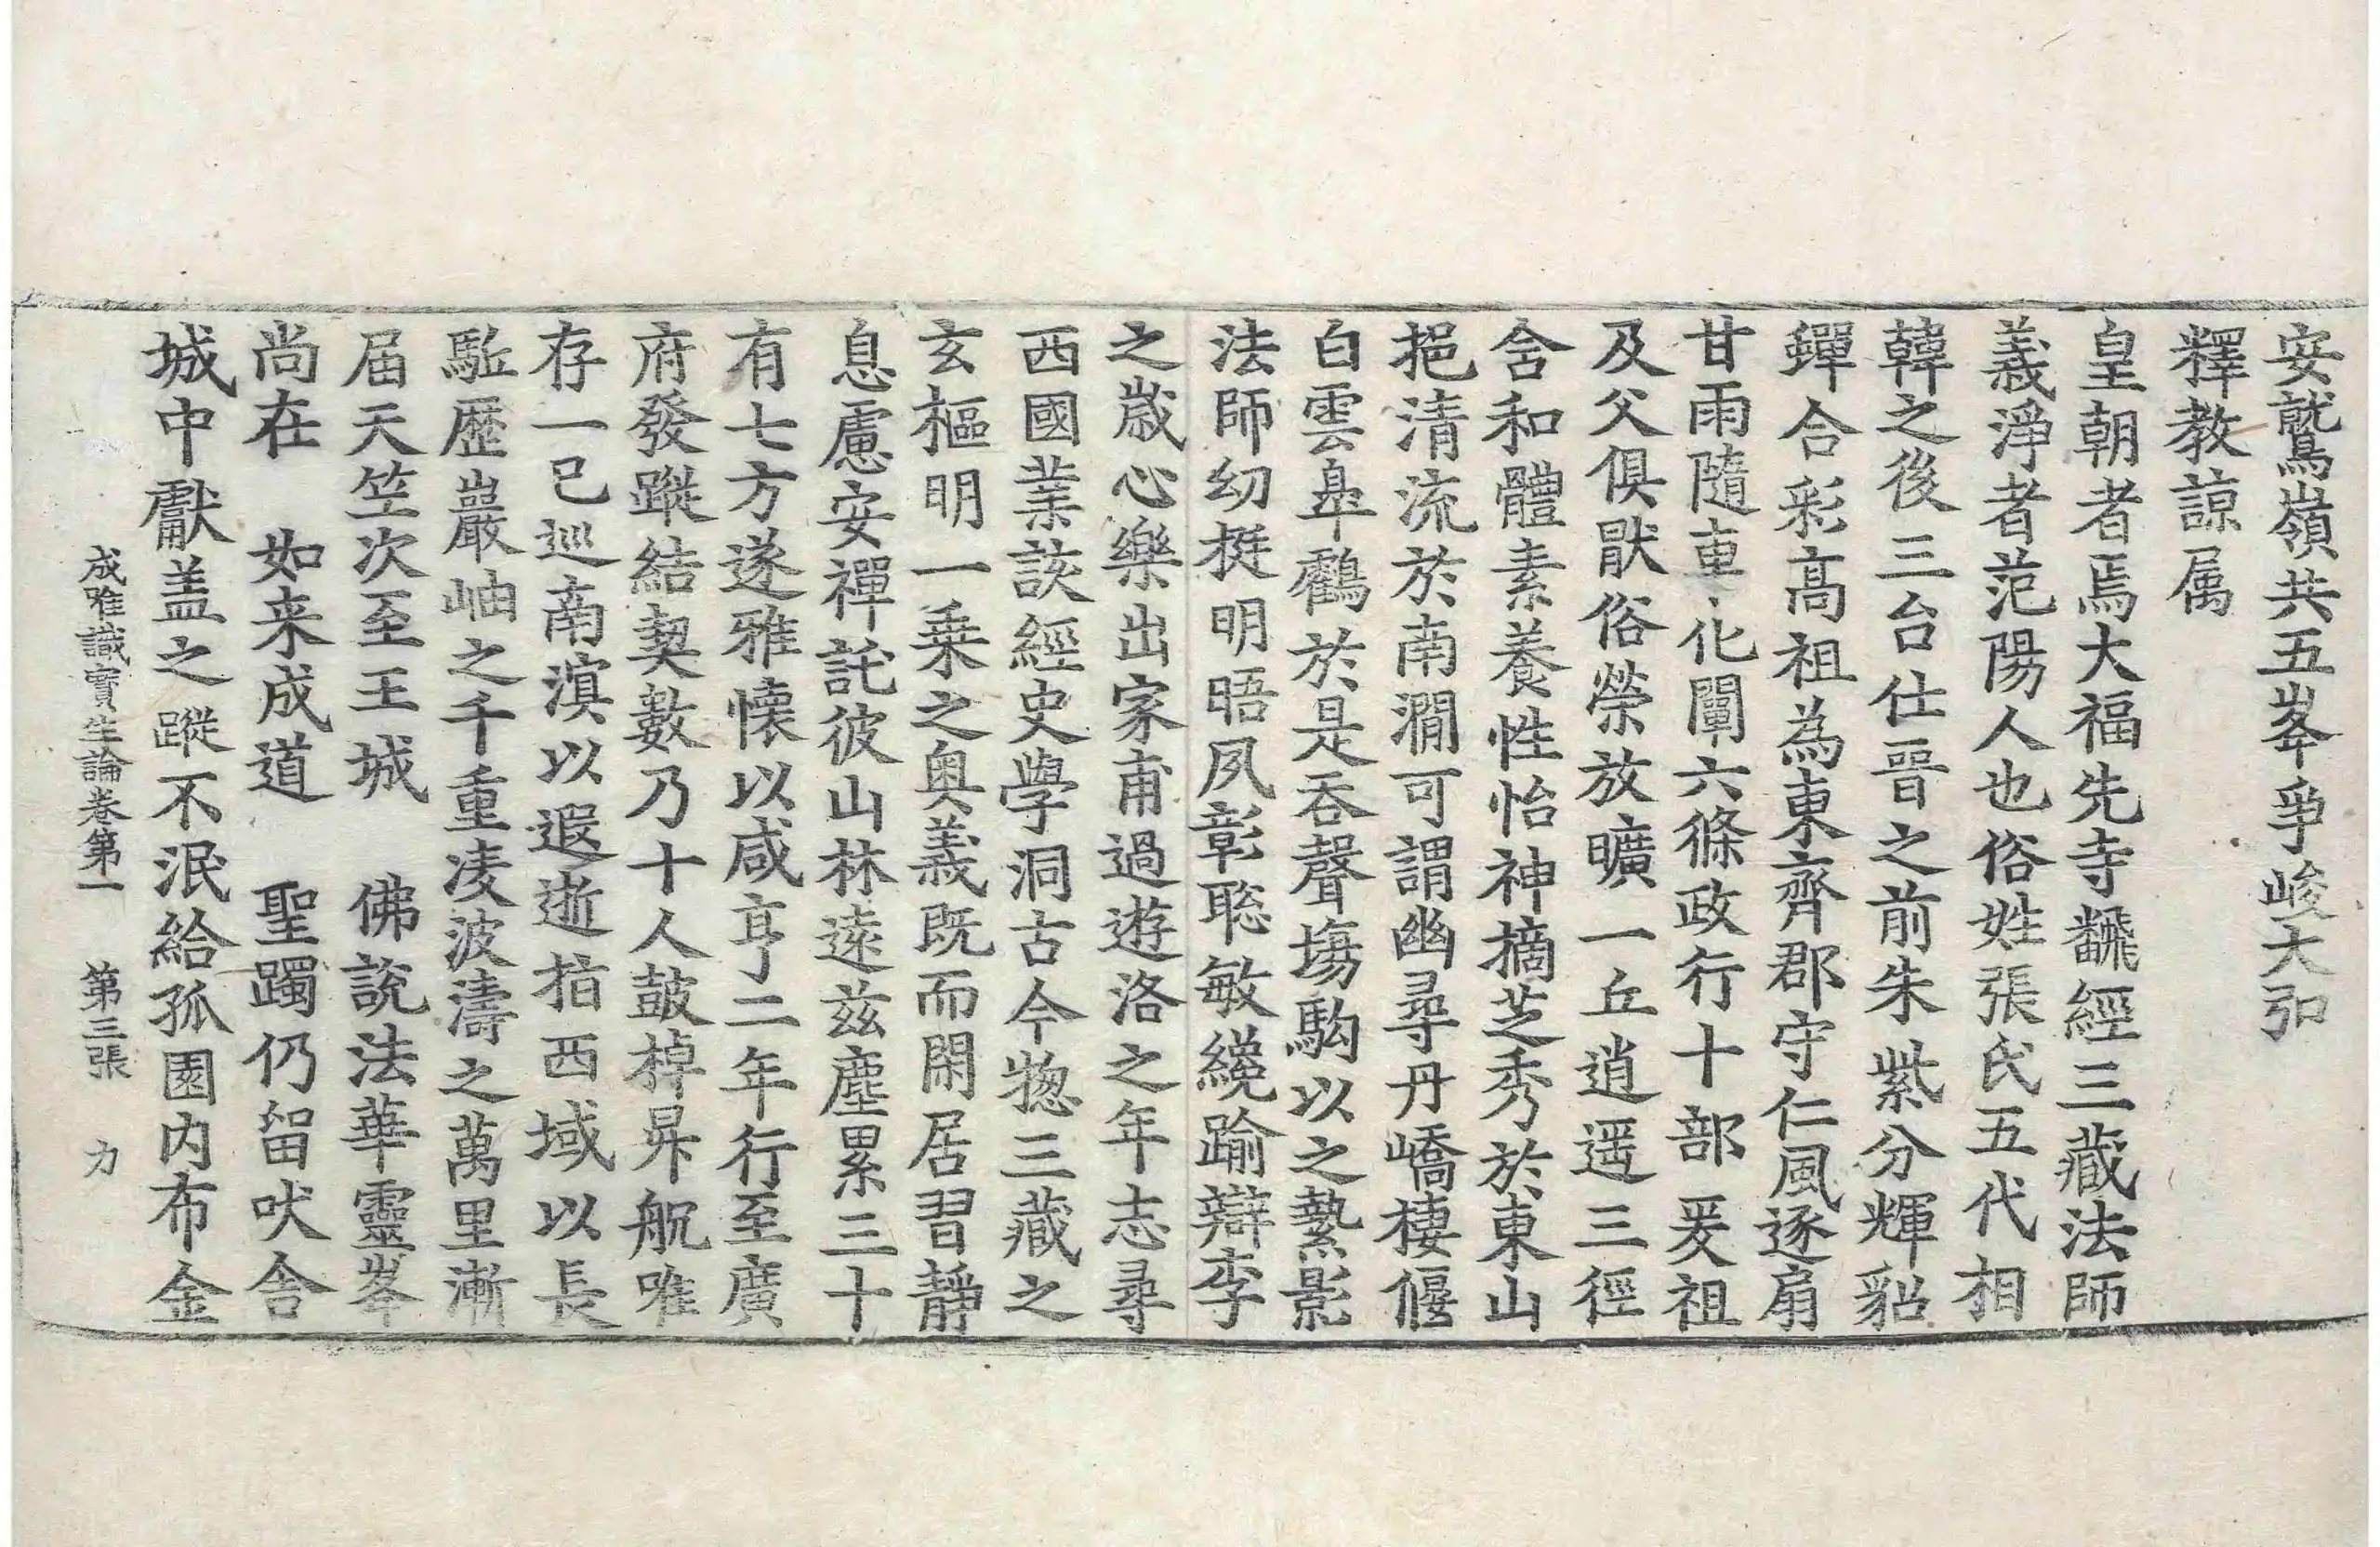 安鷲嶺共五峯爭峻大弘
釋教諒属
皇朝者焉大福先寺飜經三藏法師
義淨者范陽人也俗姓張氏五代相
韓之後三台仕晉之前朱紫分輝貂
蟬合彩高祖為東齊郡守仁風逐扇
甘雨隨車化闡六條政行十部爰祖
及父俱猒俗榮放曠一丘逍遥三徑
含和體素養性怡神摘芝秀於東山
挹清流於南澗可謂幽尋丹嶠棲偃
白雲臯鸖於是吞聲塲駒以之縶影
法師幼挺明晤夙彰聡敏纔踰辯李
之歳心樂出家甫過遊洛之年志尋
西國業該經史學洞古今揔三藏之
玄樞明一乗之奥義既而閑居習靜
息慮安禪託彼山林遠兹塵累三十
有七方遂雅懐以咸亨二年行至廣
府發蹤結契數乃十人鼓棹昇航唯
存一已巡南溟以遐逝指西域以長
駈歴巖岫之千重凌波濤之萬里漸
届天竺次至王城　佛說法華靈峯
尚在　如来成道　聖躅仍留吠舍
城中獻盖之蹤不泯給孤園内布金
成唯識寶生論卷第一　第三張　力